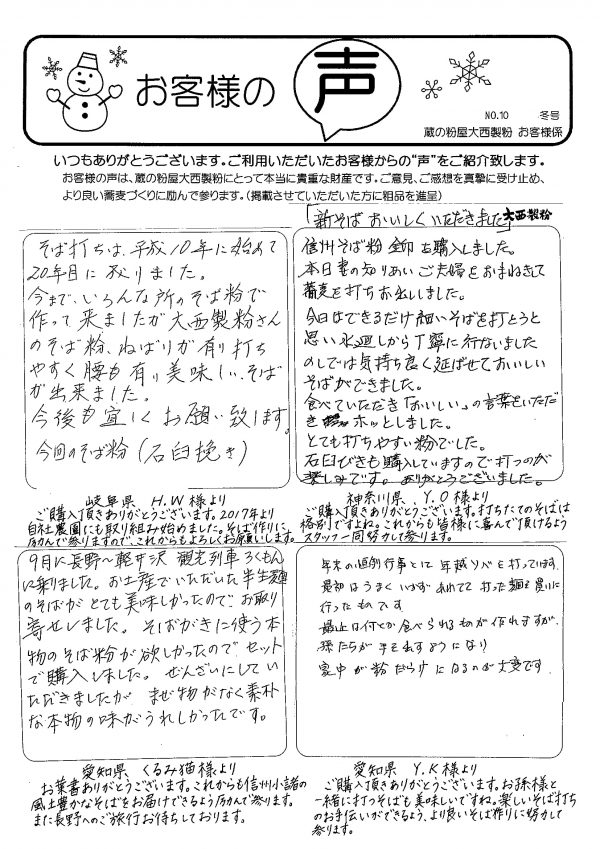 お客様の
声
NO.10 冬号
蔵の粉屋大西製粉 お客様係
いつもありがとうございます。ご利用いただいたお客様からの"声"をご紹介致します。
お客様の声は、蔵の粉屋大西製粉にとって本当に貴重な財産です。ご意見、ご感想を真摯に受け止め、
より良い蕎麦づくりに励んで参ります。(掲載させていただいた方に粗品を進呈)
そば打ちは、平成10年に始めて
20年目に成りました。
今まで、いろんな所のそば粉で
作って来ましたが大西製粉さん
のそば粉、ねばりが有り打ち
やすく腰も有り美味しい、そば
が出来ました。
今後も宜しくお願い致します。
今回のそば粉(石臼挽き)
岐阜県 H.W様より
ご購入頂きありがとうございます。2017年より
自社農園にも取り組み始めました。そば作りに
励んで参りますので、これからもよろしくお願いします。
「新そばおいしくいただきました」大西製粉
信州そば粉 金印を購入しました。
本日妻の知りあいご夫婦をおまねきして
蕎麦を打ちお出ししました。
今日はできるだけ細いそばを打とうと
思い水廻しから丁寧に行ないました
のしでは気持ち良く延ばせておいしい
そばができました。
食べていただき「おいしい」の言葉をいただ
き ホッとしました。
とても打ちやすい粉でした。
石臼びきも購入していますので打つのが
楽しみです。ありがとうございました。
神奈川県 Y.O様より
ご購入頂きありがとうございます。打ちたてのそばは
格別ですよね。これからも皆様に喜んで頂けるよう
スタッフ一同努力して参ります。
9月に長野〜軽井沢 観光列車ろくもん
に乗りました。お土産でいただいた半生麺
のそばがとても美味しかったので、お取り
寄せしました。そばがきに使う本
物のそば粉が欲しかったのでセット
で購入しました。ぜんざいにしてい
ただきましたが まぜ物がなく素朴
な本物の味がうれしかったです。
愛知県 くるみ猫様より
お葉書ありがとうございます。これからも信州小諸の
風土豊かなそばをお届けできるよう励んで参ります。
また長野へのご旅行お待ちしております。
年末の恒例行事として年越ソバを打っています。
最初はうまくいかず あわてて打った麺を買いに
行ったものです
最近は何とか食べられるものが作れますが、
孫たちが手を出すようになり
家中が粉だらけになるのが大変です
愛知県 Y.K様より
ご購入頂きありがとうございます。お孫様と
一緒に打つそばも美味しいですね。楽しいそば打ち
のお手伝いができるよう、より良いそば作りに努力して
参ります。